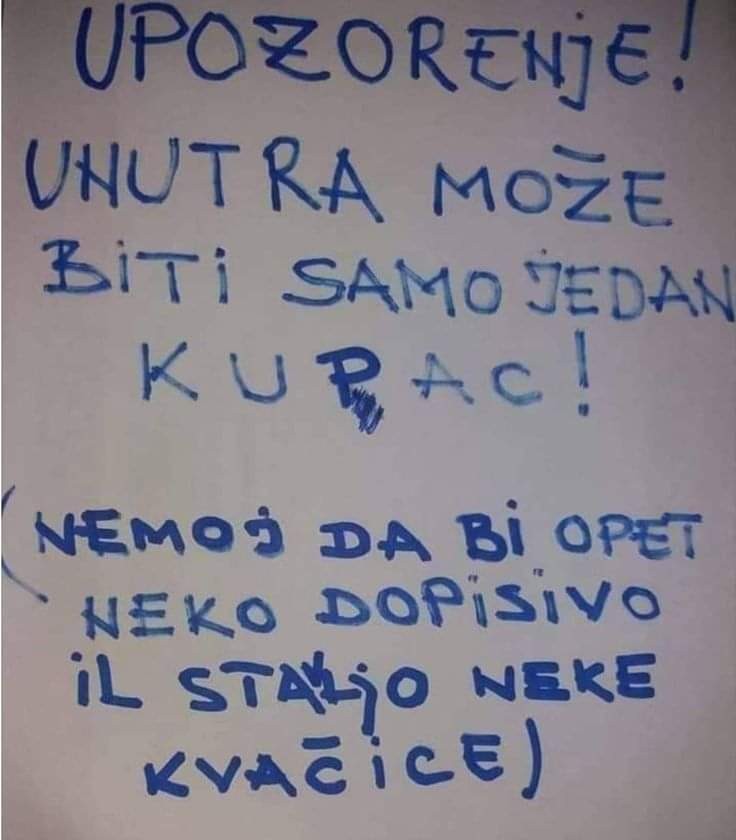 UPOZORENjE!
UNUTRA MOŽE
BiTi SAMO jEDAN
KUPAC!
(NEMOj DA Bi OPET
NEKO DOPiSiVO
iL STAVLjO NEKE
KVAČiCE)